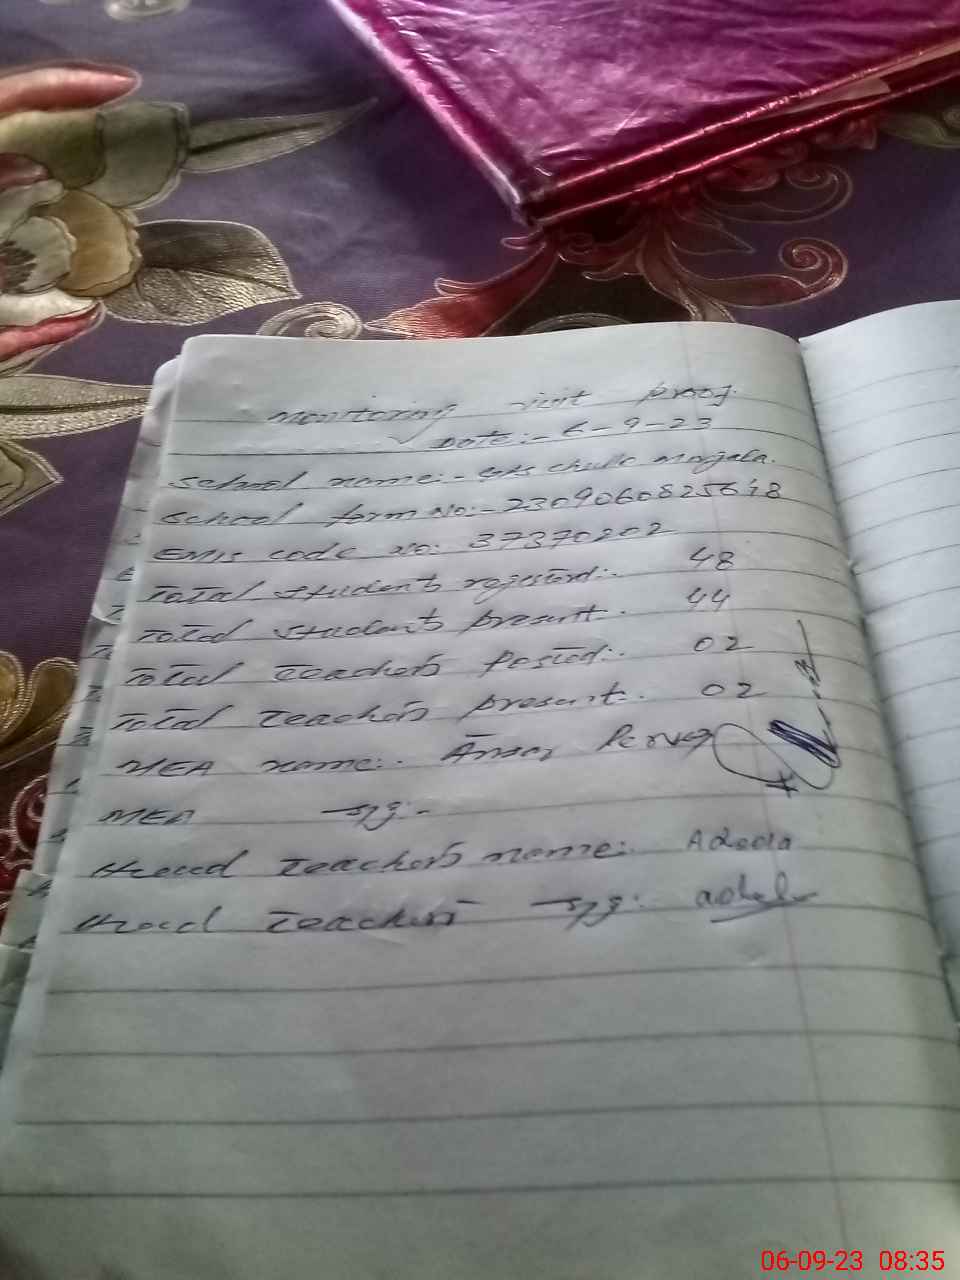 Monitoring visit proof.
Date:- 6-9-23
School name:- GPS Chullo Mangala.
School form No:- 2309060825648
EMIS code No: 37370202
Total students rejesterd:. 48
Total students present:. 44
Total Teachers Posted:. 02
Total Teachers present:. 02
MEA name:. Amar Pervez
MEA sig:-
Head Teachers name:. Adeela
Head Teachers sig:. adeela
06-09-23 08:35